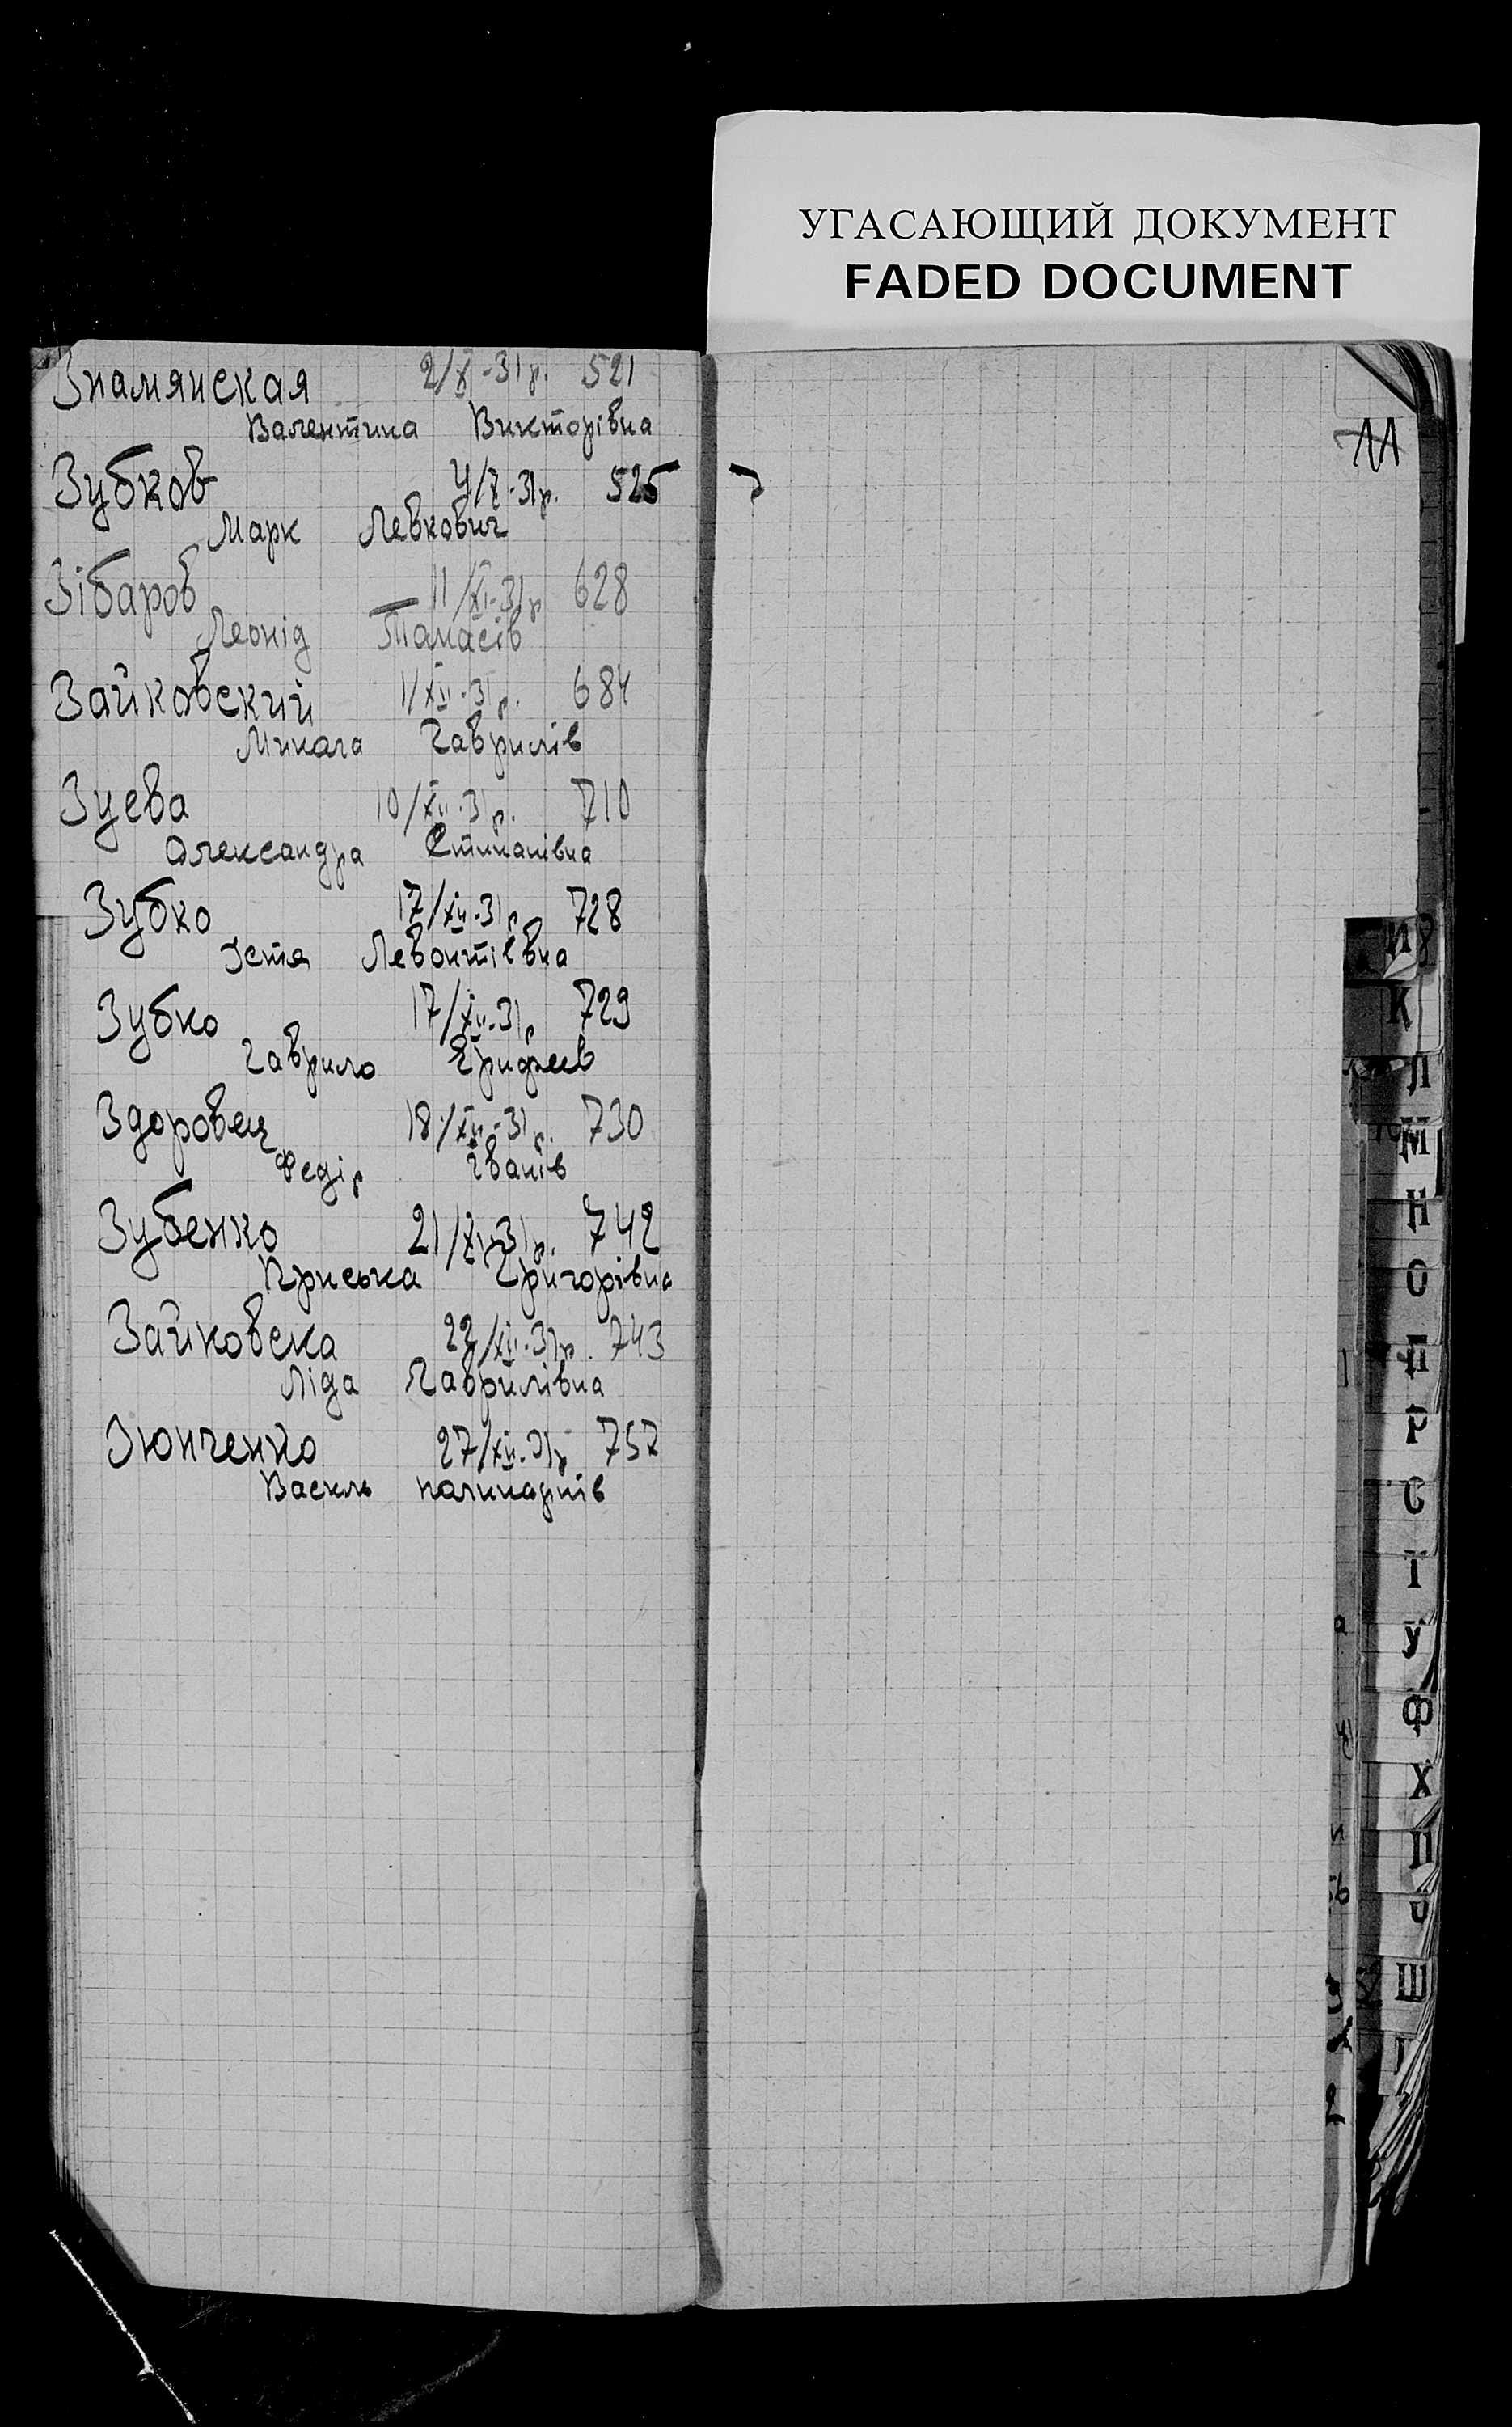 УГАСАЮЩИЙ ДОКУМЕНТ
FADED DOCUMENT
Знамянская 2/X-31р. 521
Валентина Викторівна
Зубков 4/X-31р. 525
Марк Левкович
Зібаров 11/XI-31р 628
Леонід Панасів
Зайковский 1/XII-31р. 684
Микола Гаврилів
Зуева 10/XII-31р. 710
Олександра Стипанівна
Зубко 17/XII-31р 728
Устя Левонтіївна
Зубко 17/XII-31р 729
Гаврило
Здоровец 18/XII-31р. 730
Федір Іванів
Зубенко 21/XII-31р. 742
Приська Григорівна
Зайковска 22/XII-31р. 743
Ліда Гаврилівна
Зюнченко 27/XII-31р 757
Василь
11
И
К
Л
М
Н
О
П
Р
С
Т
У
Ф
Х
Ц
Ш